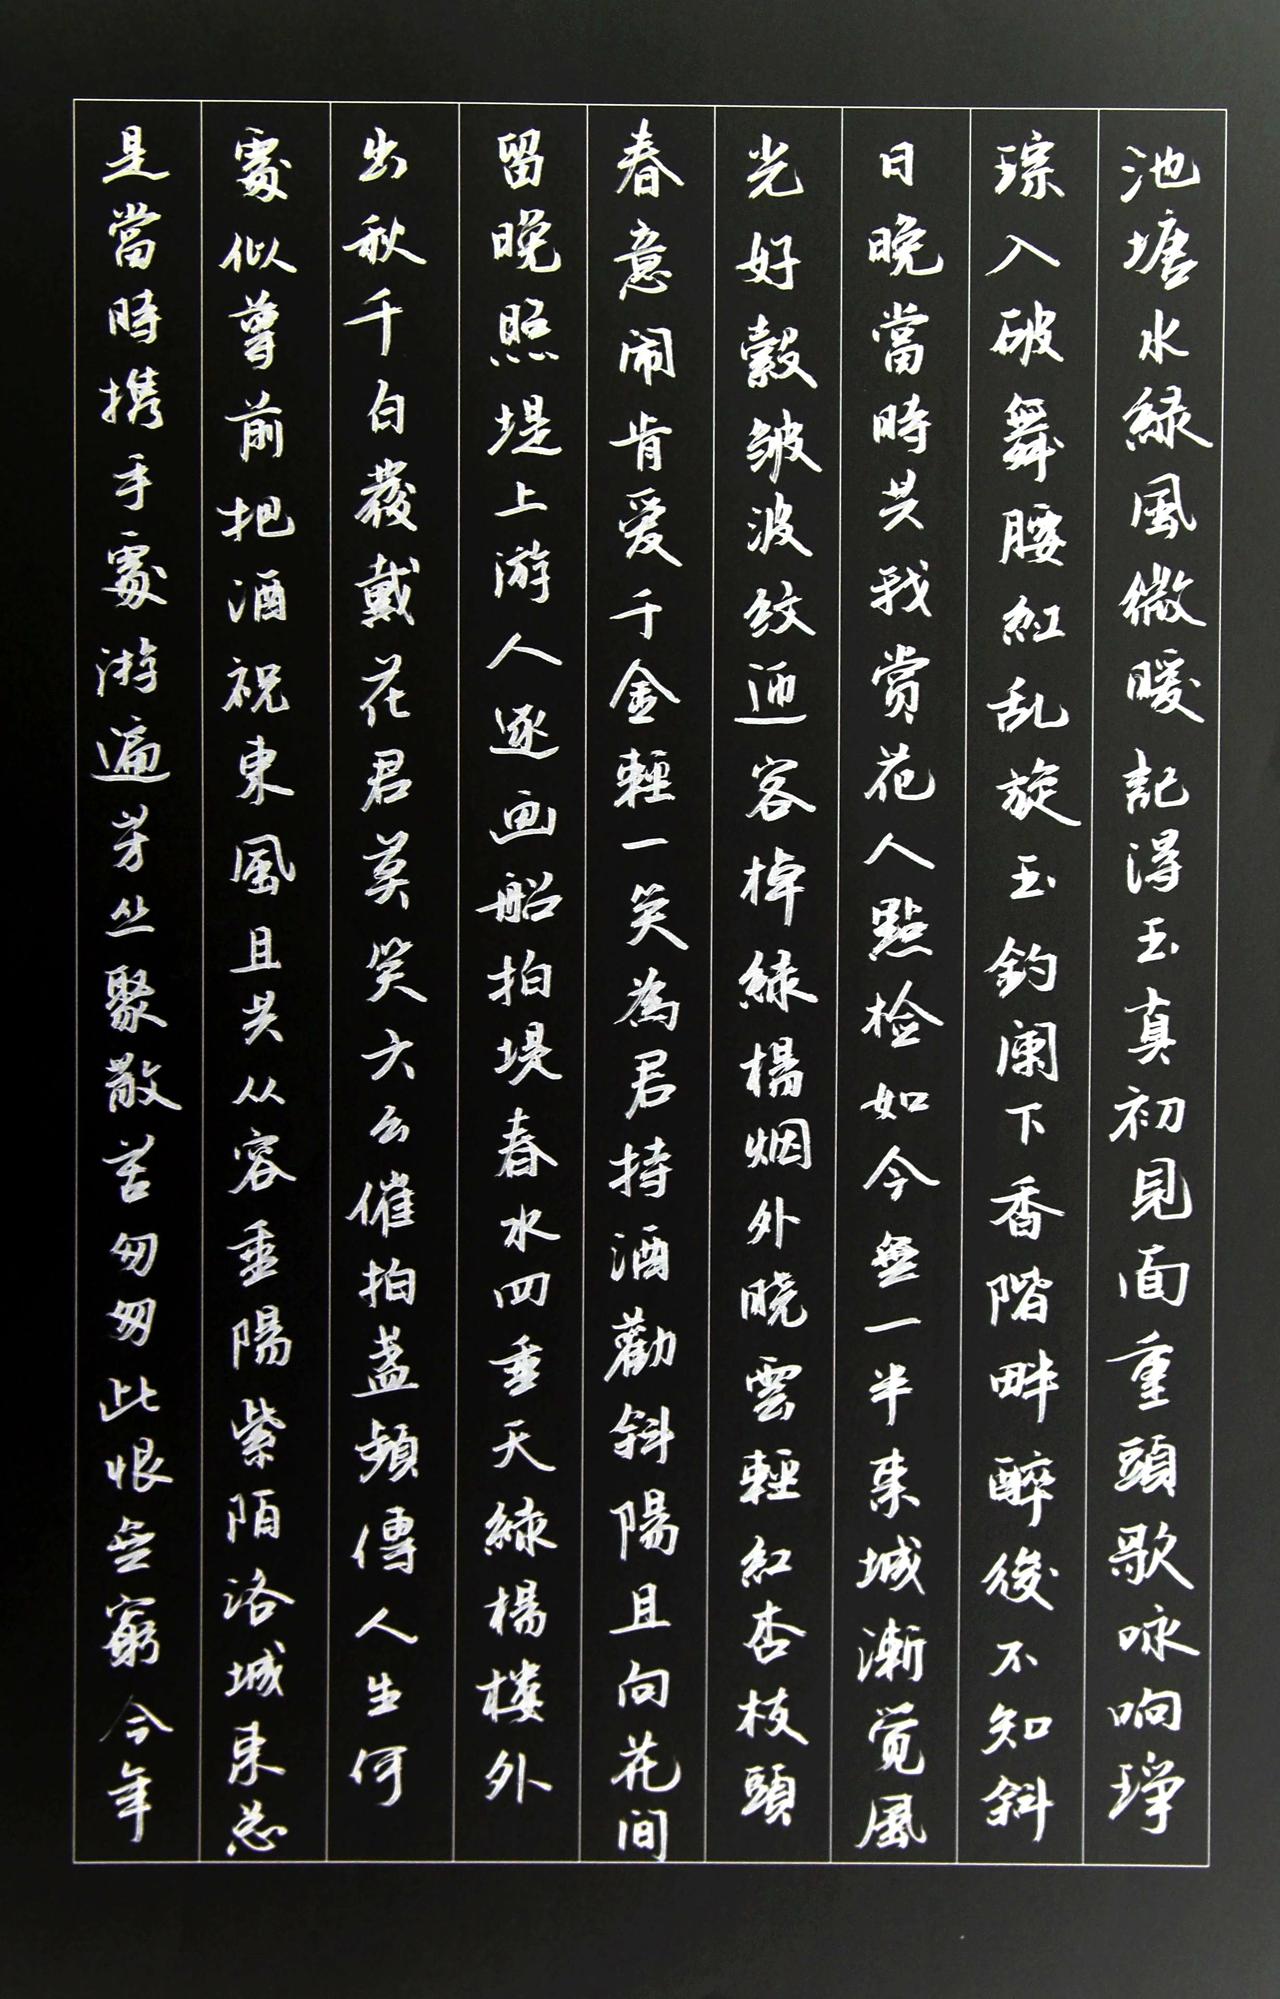 池塘水緑風微暖記得玉真初見面重頭歌咏响琤
琮入破舞腰紅乱旋玉鈎阑下香階畔醉後不知斜
日晚當時共我赏花人點检如今無一半東城漸覚風
光好縠皱波纹迎客棹緑楊烟外晓雲輕紅杏枝頭
春意闹肯爱千金輕一笑為君持酒勸斜陽且向花间
留晚照堤上游人逐画船拍堤春水四垂天緑楊楼外
出秋千白髮戴花君莫笑六幺催拍盏頻傳人生何
處似尊前把酒祝東風且共从容垂陽紫陌洛城東总
是當時携手處游遍芳丛聚散苦匆匆此恨无窮今年